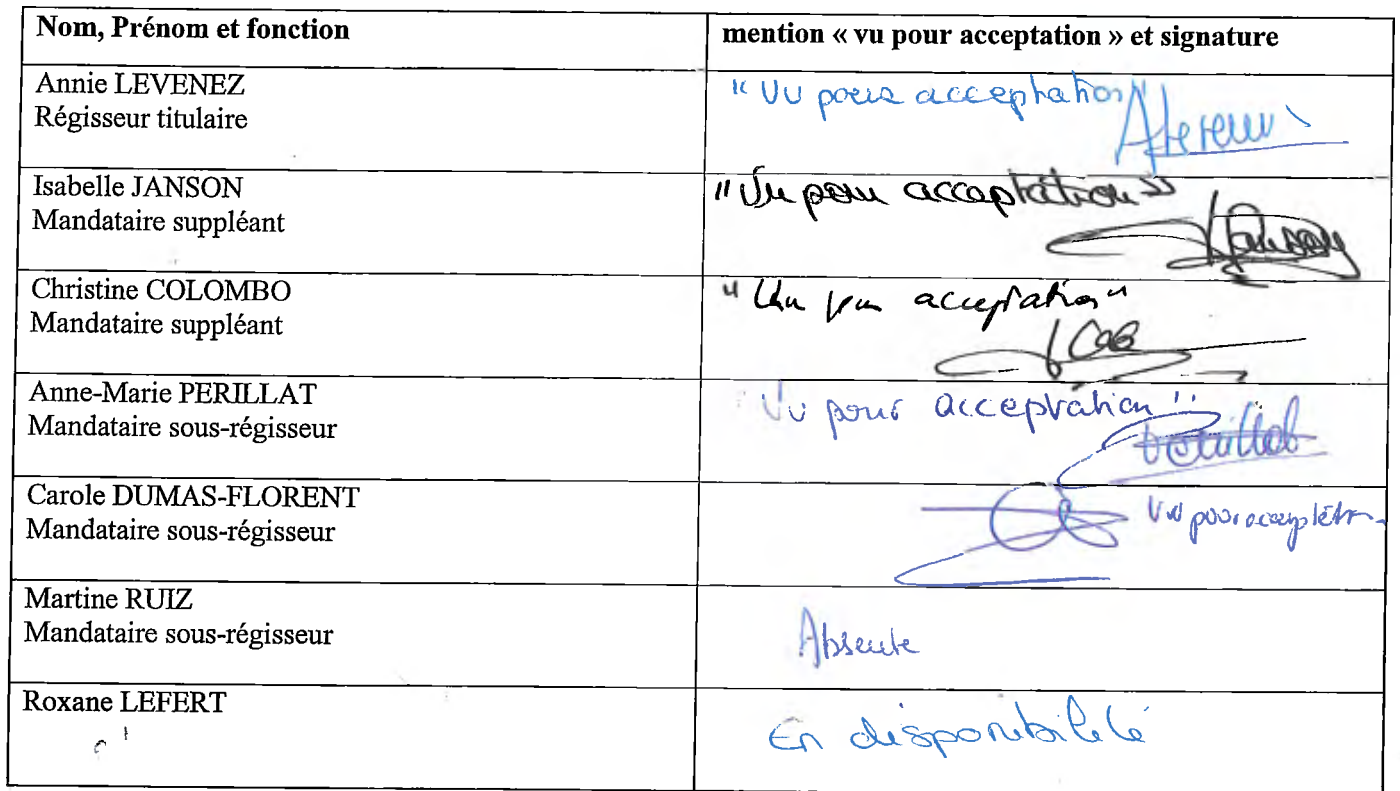 Nom, Prénom et fonction
mention « vu pour acceptation » et signature
Annie LEVENEZ
Régisseur titulaire
"Vu pour acceptation"
Isabelle JANSON
Mandataire suppléant
"Vu pour acceptation"
Christine COLOMBO
Mandataire suppléant
"Vu pour acceptation"
Anne-Marie PERILLAT
Mandataire sous-régisseur
"Vu pour acceptation"
Carole DUMAS-FLORENT
Mandataire sous-régisseur
Vu pour acceptation
Martine RUIZ
Mandataire sous-régisseur
Absente
Roxane LEFERT
En disponibilité